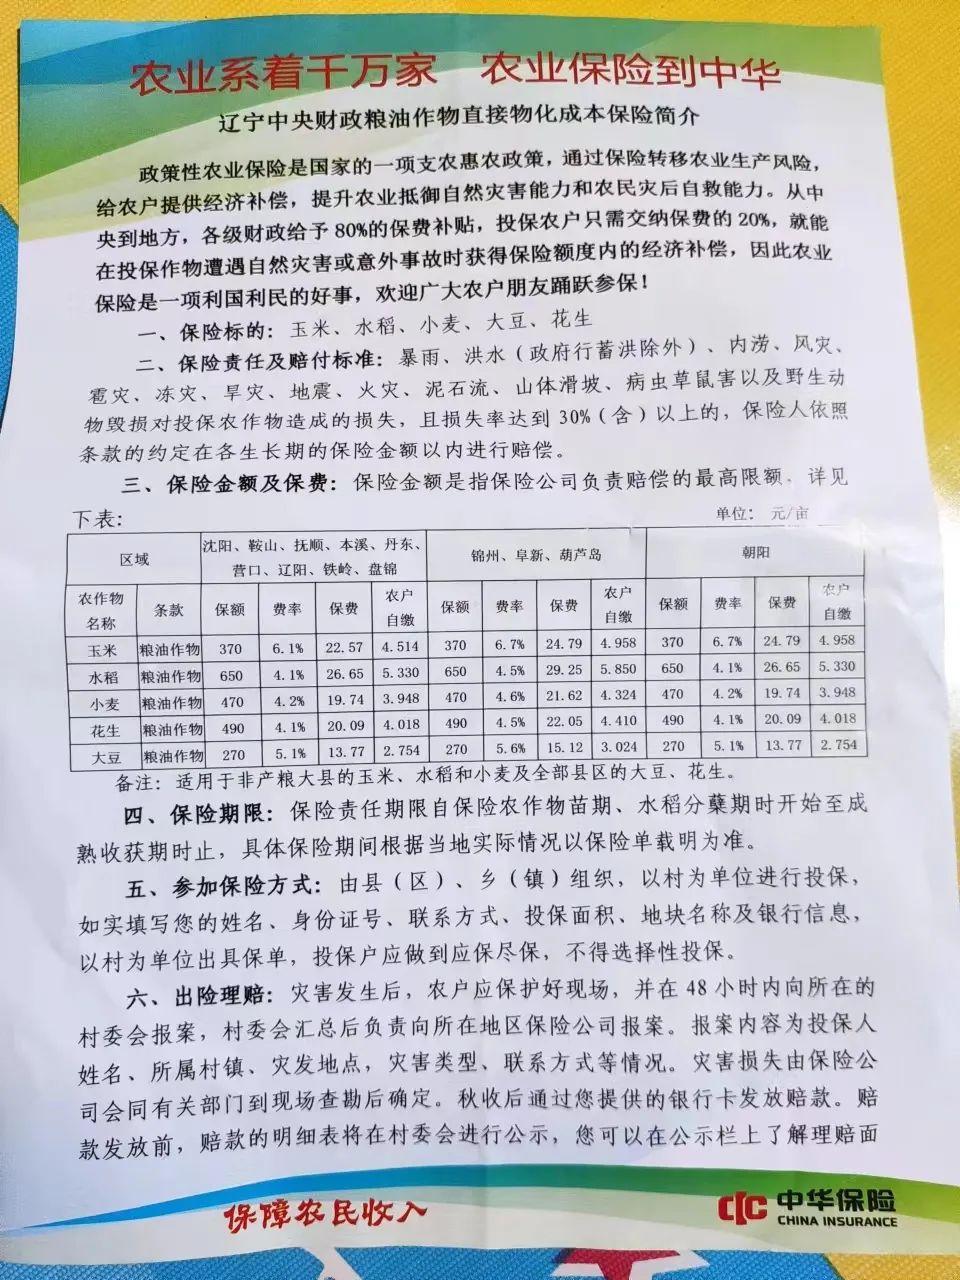 农业系着千万家 农业保险到中华
辽宁中央财政粮油作物直接物化成本保险简介
政策性农业保险是国家的一项支农惠农政策，通过保险转移农业生产风险，
给农户提供经济补偿，提升农业抵御自然灾害能力和农民灾后自救能力。从中
央到地方，各级财政给予80%的保费补贴，投保农户只需交纳保费的20%，就能
在投保作物遭遇自然灾害或意外事故时获得保险额度内的经济补偿，因此农业
保险是一项利国利民的好事，欢迎广大农户朋友踊跃参保！
一、保险标的：玉米、水稻、小麦、大豆、花生
二、保险责任及赔付标准：暴雨、洪水（政府行蓄洪除外）、内涝、风灾、
雹灾、冻灾、旱灾、地震、火灾、泥石流、山体滑坡、病虫草鼠害以及野生动
物毁损对投保农作物造成的损失，且损失率达到30%（含）以上的，保险人依照
条款的约定在各生长期的保险金额以内进行赔偿。
三、保险金额及保费：保险金额是指保险公司负责赔偿的最高限额，详见
下表：
单位： 元/亩
区域 沈阳、鞍山、抚顺、本溪、丹东、营口、辽阳、铁岭、盘锦 锦州、阜新、葫芦岛 朝阳
农作物名称 条款 保额 费率 保费 农户自缴 保额 费率 保费 农户自缴 保额 费率 保费 农户自缴
玉米 粮油作物 370 6.1% 22.57 4.514 370 6.7% 24.79 4.958 370 6.7% 24.79 4.958
水稻 粮油作物 650 4.1% 26.65 5.330 650 4.5% 29.25 5.850 650 4.1% 26.65 5.330
小麦 粮油作物 470 4.2% 19.74 3.948 470 4.6% 21.62 4.324 470 4.2% 19.74 3.948
花生 粮油作物 490 4.1% 20.09 4.018 490 4.5% 22.05 4.410 490 4.1% 20.09 4.018
大豆 粮油作物 270 5.1% 13.77 2.754 270 5.6% 15.12 3.024 270 5.1% 13.77 2.754
备注：适用于非产粮大县的玉米、水稻和小麦及全部县区的大豆、花生。
四、保险期限：保险责任期限自保险农作物苗期、水稻分蘖期时开始至成
熟收获期时止，具体保险期间根据当地实际情况以保险单载明为准。
五、参加保险方式：由县（区）、乡（镇）组织，以村为单位进行投保，
如实填写您的姓名、身份证号、联系方式、投保面积、地块名称及银行信息，
以村为单位出具保单，投保户应做到应保尽保，不得选择性投保。
六、出险理赔：灾害发生后，农户应保护好现场，并在48小时内向所在的
村委会报案，村委会汇总后负责向所在地区保险公司报案。报案内容为投保人
姓名、所属村镇、灾发地点，灾害类型、联系方式等情况。灾害损失由保险公
司会同有关部门到现场查勘后确定。秋收后通过您提供的银行卡发放赔款。赔
款发放前，赔款的明细表将在村委会进行公示，您可以在公示栏上了解理赔面
保障农民收入
中华保险
CHINA INSURANCE